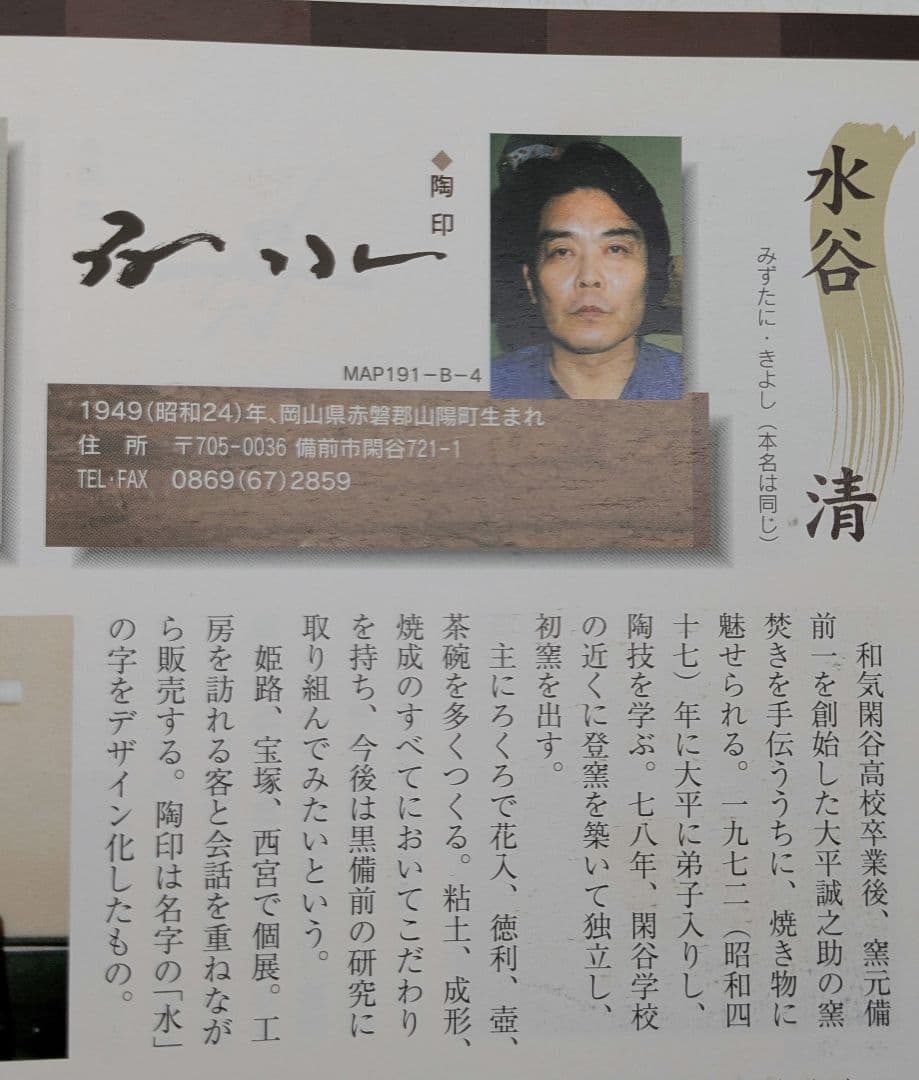 水谷 清
みずたに・きよし（本名は同じ）
◆陶印
MAP191-B-4
1949(昭和24)年、岡山県赤磐郡山陽町生まれ
住 所 〒705-0036 備前市閑谷721-1
TEL・FAX 0869(67)2859
和気閑谷高校卒業後、窯元備
前一を創始した大平誠之助の窯
焚きを手伝ううちに、焼き物に
魅せられる。一九七二（昭和四
十七）年に大平に弟子入りし、
陶技を学ぶ。七八年、閑谷学校
の近くに登窯を築いて独立し、
初窯を出す。
主にろくろで花入、徳利、壺、
茶碗を多くつくる。粘土、成形、
焼成のすべてにおいてこだわり
を持ち、今後は黒備前の研究に
取り組んでみたいという。
姫路、宝塚、西宮で個展。工
房を訪れる客と会話を重ねなが
ら販売する。陶印は名字の「水」
の字をデザイン化したもの。